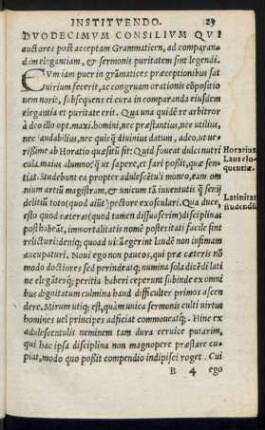 INSTITVENDO. 29
DVODECIMVM CONSILIVM QVI
auctores post acceptam Grammaticen, ad comparan-
dam elegantiam, & sermonis puritatem sint legendi.
CVm iam puer in grãmatices præceptionibus sat
uirium fecerit, ac congruam orationis cõpositio
nem norit, subsequens ei cura in comparanda eiusdem
elegantia et puritate erit. Qua una quidẽ re arbitror
à deo illo opt. maxi. homini, nec præstantius, nec utilius,
nec laudabilius, nec quicq̃ diuinius datum, adeo, ut ue-
rissime ab Horatio quæsitũ sit: Quid foueat dulci nutri
cula maius alumno, q̃ ut sapere, et fari possit, quæ sen-
tiat. Studebunt ea propter adulescẽtuli mouco, eam om
nium artiũ magistram, & unicum tã iuuentutis q̃ serij
delitiũ toto (quod aiũt) pectore exosculari. Qua duce,
esto quod cæteras (quod tamen dissuaserim) disciplinas
post habeãt, immortalitatis nomẽ posteritati facile sint
relicturi: denique, quod ut ãegerint laudẽ non infimam
aucupaturi. Noui ego non paucos, qui præ cæteris nõ
modo doctiores sed perinde atque numina sola dicẽdi lati
ne elegãterque peritia haberi ceperunt subinde ex omni-
bus dignitatum culmina haud difficulter primos ascen
dere. Mirum utique est, quàm unica sermonis culti uirtus
homines uel principes adficiat commoueatque. Hinc ex
adulescentulis neminem tam dura ceruice putarim,
qui hac ipsa disciplina non magnopere præstare cu-
piat, modo quo possit compendio indipisci roget. Cui
B 4 ego
Horatius.
Laus elo-
quentiæ.
Latinitati
studendũ